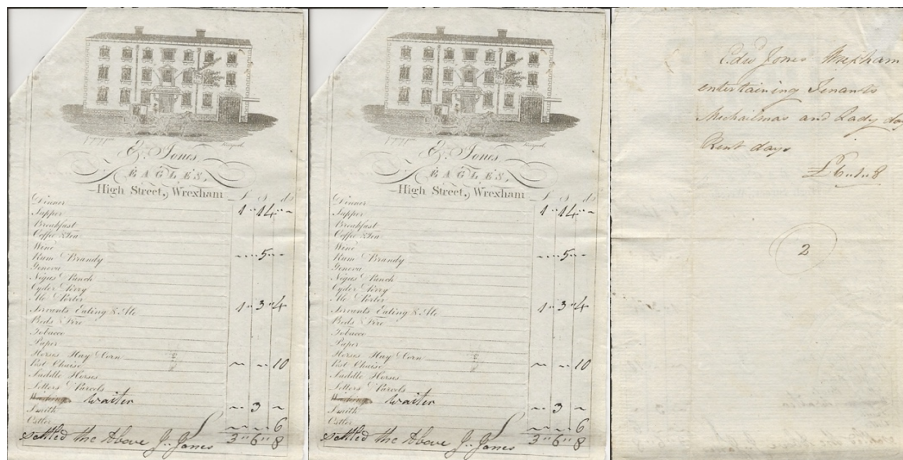 E. Jones,
EAGLES,
High Street, Wrexham
£ s d
Dinner 1 " 14 " -
Supper
Breakfast
Coffee & Tea
Wine
Rum Brandy - " 5 " -
Geneva
Negus Punch
Cyder Perry
Ale Porter
Servants Eating & Ale 1 " 3 " 4
Beds Fire
Tobacco
Paper
Horses Hay Corn
Post Chaise - " - " 10
Saddle Horses
Letters Parcels
Waiter - 3 -
Smith
Ostler - - 6
Settled the Above J. Jones 3 " 6 " 8
E. Jones,
EAGLES,
High Street, Wrexham
£ s d
Dinner 1 " 14 " -
Supper
Breakfast
Coffee & Tea
Wine
Rum Brandy - " 5 " -
Geneva
Negus Punch
Cyder Perry
Ale Porter
Servants Eating & Ale 1 " 3 " 4
Beds Fire
Tobacco
Paper
Horses Hay Corn
Post Chaise - " - " 10
Saddle Horses
Letters Parcels
Waiter - 3 -
Smith
Ostler - - 6
Settled the Above J. Jones 3 " 6 " 8
Edwd Jones Wrexham
entertaining Tenants
Michailmas and Lady day
Rent days
2